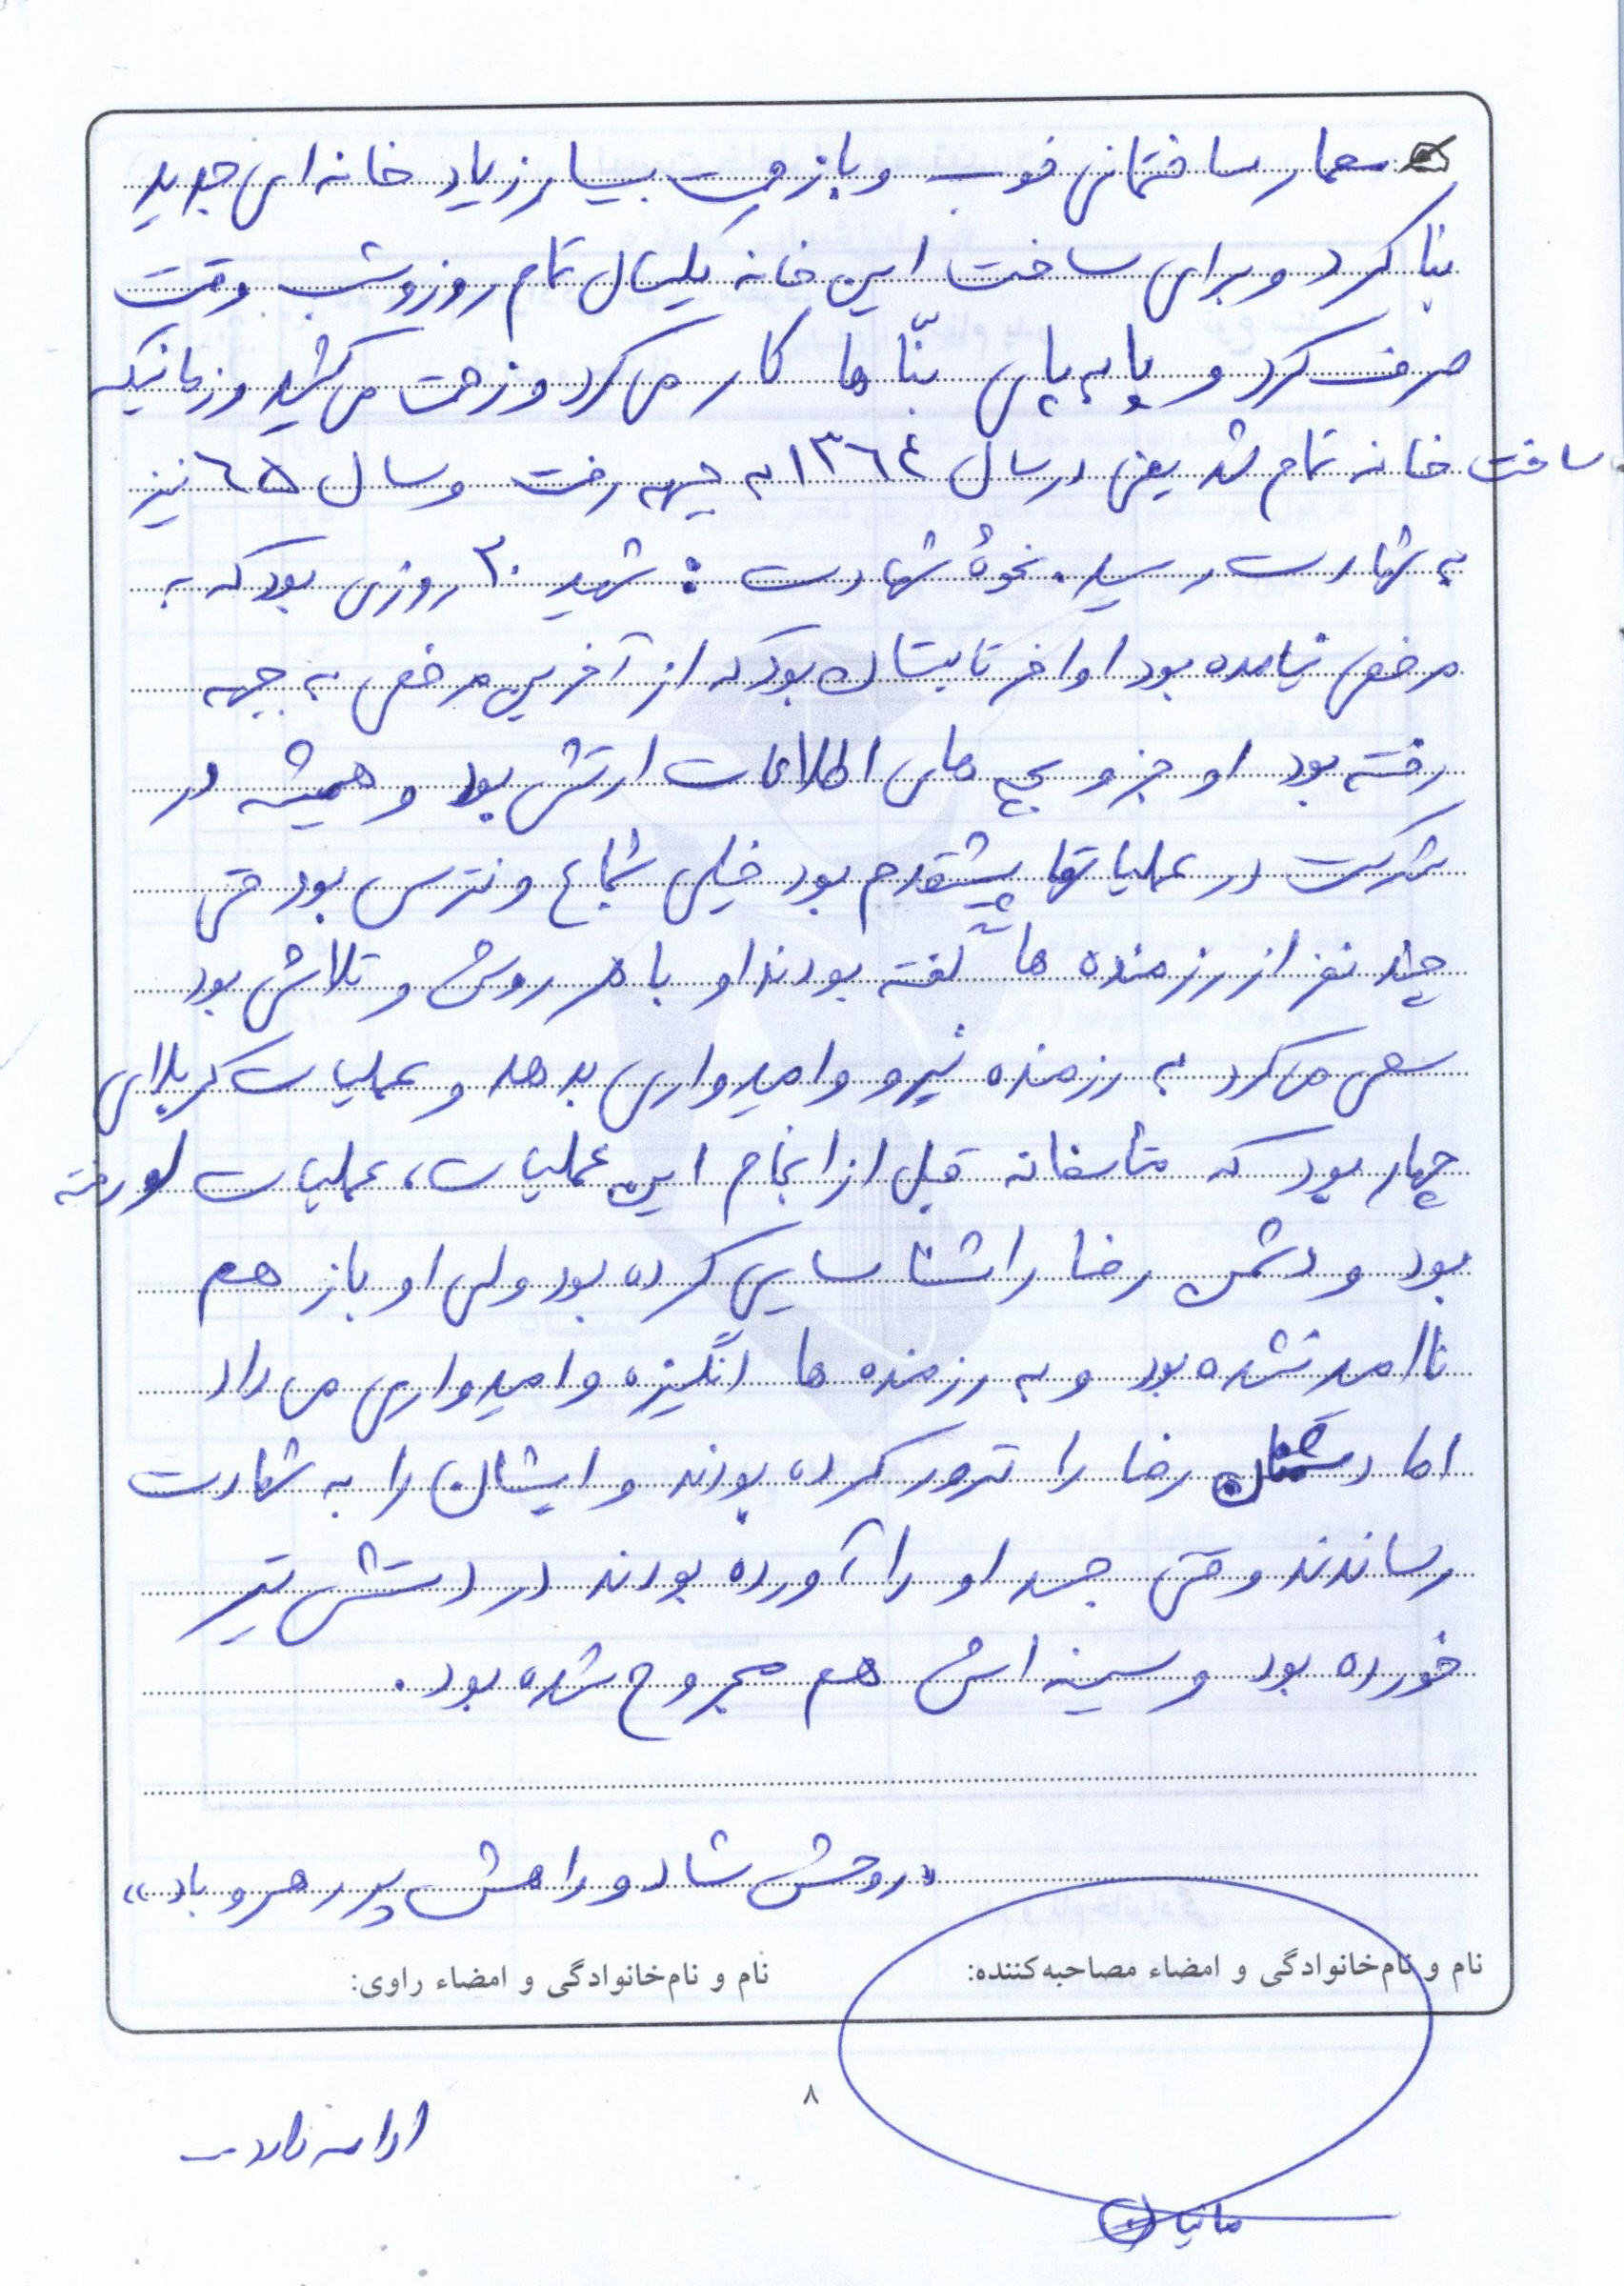 معمار ساختمانی خوب و با زحمت بسیار زیاد خانه ای جدید
بنا کرد و برای ساخت این خانه یکسال تمام روز و شب وقت
صرف کرد و پا به پای بنّا ها کار می کرد و زحمت می کشید و زمانیکه
ساخت خانه تمام شد یعنی در سال ۱۳۶۴ به جبهه رفت و سال ۶۵ نیز
به شهادت رسید. نحوهٔ شهادت : شهید ۲۰ روزی بود که به
مرخصی نیامده بود اواخر تابستان بود که از آخرین مرخصی به جبهه
رفته بود او جزو بچه های اطلاعات ارتش بود و همیشه در
شرکت در عملیاتها پیشقدم بود خیلی شجاع و نترس بود حتی
چند نفر از رزمنده ها گفته بودند او با هر روش و تلاش بود
سعی می کرد به رزمنده نیرو و امیدواری بدهد و عملیات کربلای
چهار بود که متاسفانه قبل از انجام این عملیات، عملیات لو رفته
بود و دشمن رضا را شناسایی کرده بود ولی او باز هم
ناامید نشده بود و به رزمنده ها انگیزه و امیدواری می داد
اما دشمنان رضا را ترور کرده بودند و ایشان را به شهادت
رساندند وقتی جسد او را آورده بودند در دستش تیر
خورده بود و سینه اش هم مجروح شده بود.
«روحش شاد و راهش پر رهرو باد»
نام و نام‌خانوادگی و امضاء مصاحبه‌کننده:
نام و نام‌خانوادگی و امضاء راوی:
۸
ادامه دارد